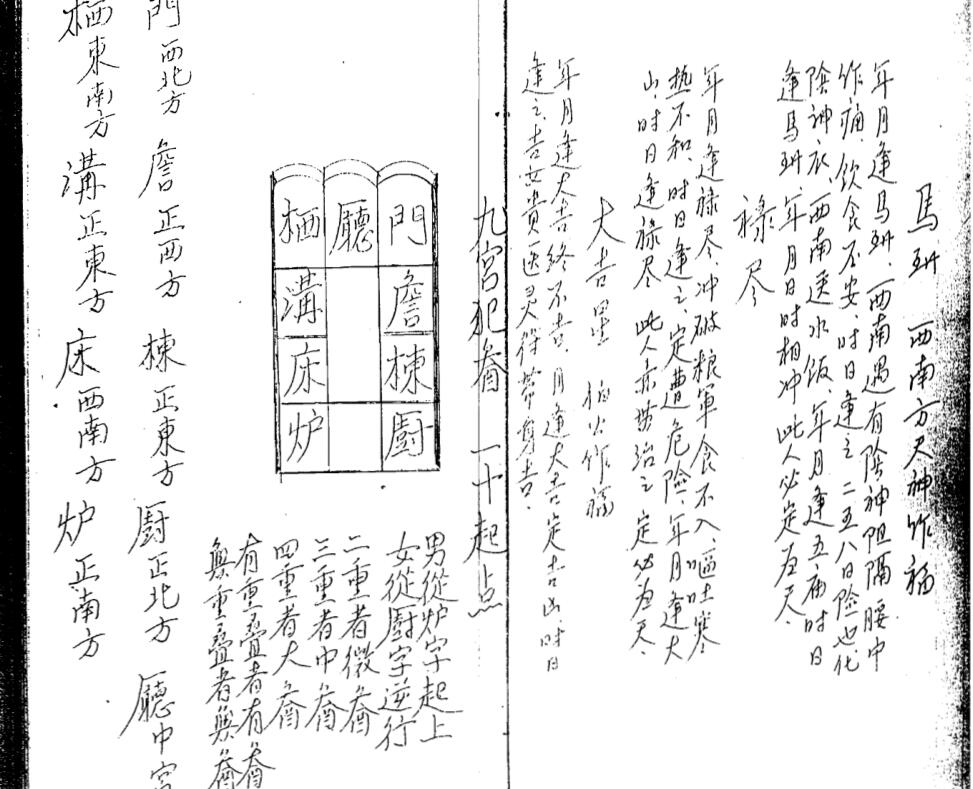 馬 西南方天神作禍
年月逢馬，西南遇有陰神阻隔腰中
作痛、飲食不安、时日逢之 二五八日险也化
陰神衣、西南送水饭、年月逢五庙时日
逢馬、年月日时相冲此人必定
禄尽
年月逢禄尽、冲破粮軍食不入、嘔吐寒
热不和、时日逢之、定遭危险、年月逢大
山、时日逢禄尽 此人治之定必
大吉星 作禍
年月逢大吉終不吉、月逢大吉定吉凶、时日
逢之、吉女贵医灵符带身吉、
九宮犯 一十起点
門 廳 栖
詹 溝
棟 床
廚 炉
男從炉字起上
女從廚字逆行
二重者微
三重者中
四重者大
有重疊者有
無重疊者無
門西北方 詹正西方 棟正東方 廚正北方 廳中宮
栖東南方 溝正東方 床西南方 炉正南方